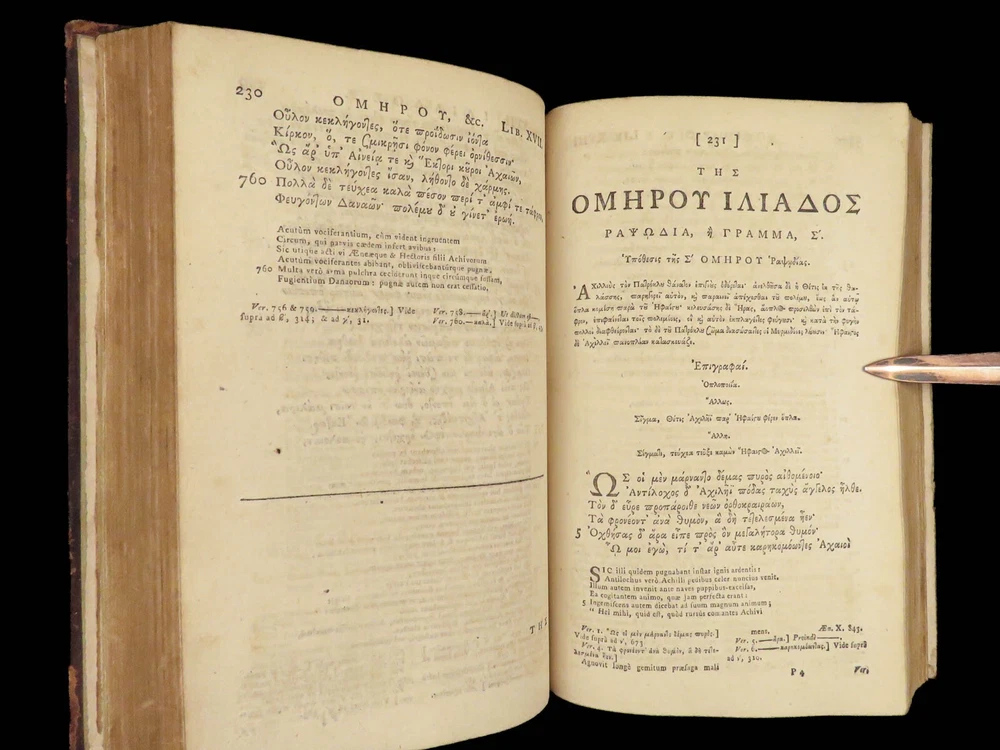 230
ΟΜΗΡΟΥ, &c. LIB. XVII.
Οὖλον κεκλήγοντες, ὅτε προΐδωσιν ἰόντα
Κίρκον, ὅ, τε σμικρῇσι φόνον φέρει ὀρνίθεσσιν·
Ὣς ἄρ' ὑπ' Αἰνείᾳ τε κỳ Ἕκτορι κῦροι Ἀχαιῶν,
Οὖλον κεκλήγοντες ἴσαν, λήθοντο δὲ χάρμης.
760 Πολλὰ δὲ τεύχεα καλὰ πέσον περί τ' ἀμφί τε τάφρον,
Φευγόντων Δαναῶν· πολέμυ δ' ὐ γίνετ' ἐρωή.
Acutùm vociferantium, cùm vident ingruentem
Circum, qui parvis cædem infert avibus:
Sic utique acti vi Æneæque & Hectoris filii Achivorum
Acutùm vociferantes abibant, obliviscebanturque pugnæ.
760 Multa verò arma pulchra ceciderunt inque circúmque fossam,
Fugientium Danaorum: pugnæ autem non erat cessatio.
Ver. 756 & 759.——κεκλήγοντες.] Vide
supra ad β', 314; & ad γ', 31.
Ver. 758.—
Ver. 760.—καλὰ.] Vide suprà
[ 231 ]
ΤΗΣ
ΟΜΗΡΟΥ ΙΛΙΑΔΟΣ
ΡΑΨΩΔΙΑ, ἢ ΓΡΑΜΜΑ, Σ'.
Ὑπόθεσις τῆς Σ' ΟΜΗΡΟΥ Ῥαψῳδίας.
ἈΧιλλεὺς τὸν Πατρόκλυ θάνατον ἐπιγνὺς ὀδύρεται· ἀνελθῦσα δὲ ἡ Θέτις ἐκ τῆς θα-
λάσσης, παρηγορεῖ αὐτὸν, κỳ παραινεῖ ἀπέχεσθαι τῦ πολέμυ, ἕως ἂν αὐτῷ
ὅπλα κομίσῃ παρὰ τῦ Ἡφαίστυ· κελευσάσης δὲ Ἥρας, ἄνοπλος προελθὼν ἐπὶ τὴν τά-
φρον, ἐπιφαίνεται τοῖς πολεμίοις, οἱ κỳ αὐτὸν ἐκπλαγέντες φεύγυσι· κỳ κατὰ τὴν φυγὴν
πολλοὶ διαφθείρονται· τὸ δὲ τῦ Πατρόκλυ σῶμα διασώσαντες οἱ Μυρμιδόνες λύυσιν· Ἥφαιστος
δὲ Ἀχιλλεῖ πανοπλίαν κατασκευάζει.
Ἐπιγραφαί.
Ὁπλοποιΐα.
Ἄλλως.
Σῖγμα, Θέτις Ἀχιλῆϊ παρ' Ἡφαίστυ φέρεν ὅπλα.
Ἄλλη.
Σίγμασι, τεύχεα τεῦξε καμὼν Ἥφαιστος Ἀχιλλεῖ.
ὫΣ οἱ μὲν μάρναντο δέμας πυρὸς αἰθομένοιο·
Ἀντίλοχος δ' Ἀχιλῆϊ πόδας ταχὺς ἄγγελος ἦλθε.
Τὸν δ' εὗρε προπάροιθε νεῶν ὀρθοκραιράων,
Τὰ φρονέοντ' ἀνὰ θυμὸν, ἃ δὴ τετελεσμένα ἦεν·
5 Ὀχθήσας δ' ἄρα εἶπε πρὸς ὃν μεγαλήτορα θυμόν·
Ὤ μοι ἐγὼ, τί τ' ἄρ' αὖτε καρηκομόωντες Ἀχαιοὶ
SIC illi quidem pugnabant instar ignis ardentis:
Antilochus verò Achilli pedibus celer nuncius venit.
Illum autem invenit ante naves puppibus-excelsas,
Ea cogitantem animo, quæ jam perfecta erant:
5 Ingemiscens autem dicebat ad suum magnum animum;
“ Hei mihi, quid est, quòd rursus comantes Achivi
Ver. 1. Ὣς οἱ μὲν μάρναντο δέμας πυρὸς.]
Vide suprà ad ν', 673.
Ver. 4. Τὰ φρονέοντ' ἀνὰ θυμὸν, ἃ δὴ τετε-
λεσμένα ἦεν.]
Agnovit longè gemitum præsaga mali
ment. Æn. X. 843.
Ver. 5.——ἄρα.] Proinde——.
Ver. 6.——καρηκομόωντες.] Vide suprà
ad ν', 310.
P 4
Ver.